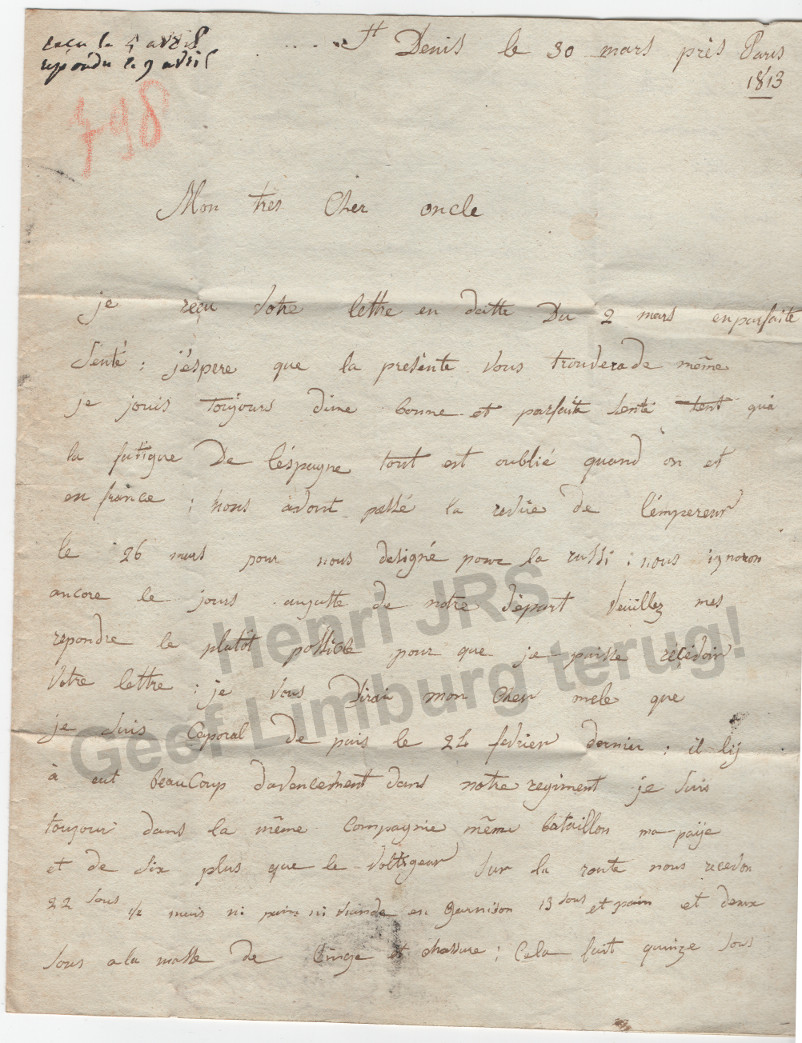 reçu le 5 avril
répondu le 9 avril
798
St Denis le 30 mars près Paris
1813
Mon tres Cher oncle
je reçu votre lettre en datte Du 2 mars en parfaite
Senté : j'éspere que la presénte vous trouvera de même
je jouis toujours d'une bonne et parfaite senté tent qu'a
la fatigue De l'éspagne tout est oublié quand on et
en france : nous avont passé la revue de l'émpereur
le 26 mars pour nous designé pour la russi : nous ignoron
ancore le jours au juste de notre départ veuillez mes
repondre le plutôt possible pour que je puisse récévoir
votre lettre : je vous dirai mon cher oncle que
je suis Caporal de puis le 24 fevrier dernier : il lij
à eut beauCoup d'avencement dans notre regiment je suis
toujour dans la même Compagnie même bataillon ma paÿe
et de six plus que le voltigeur sur la route nous recevon
22 sous ½ mais ni pain ni viande en garnison 13 sous et pain et deux
sous a la masse de linge et chassure : Cela fait quinze sous
Henri JRS
Geef Limburg terug!